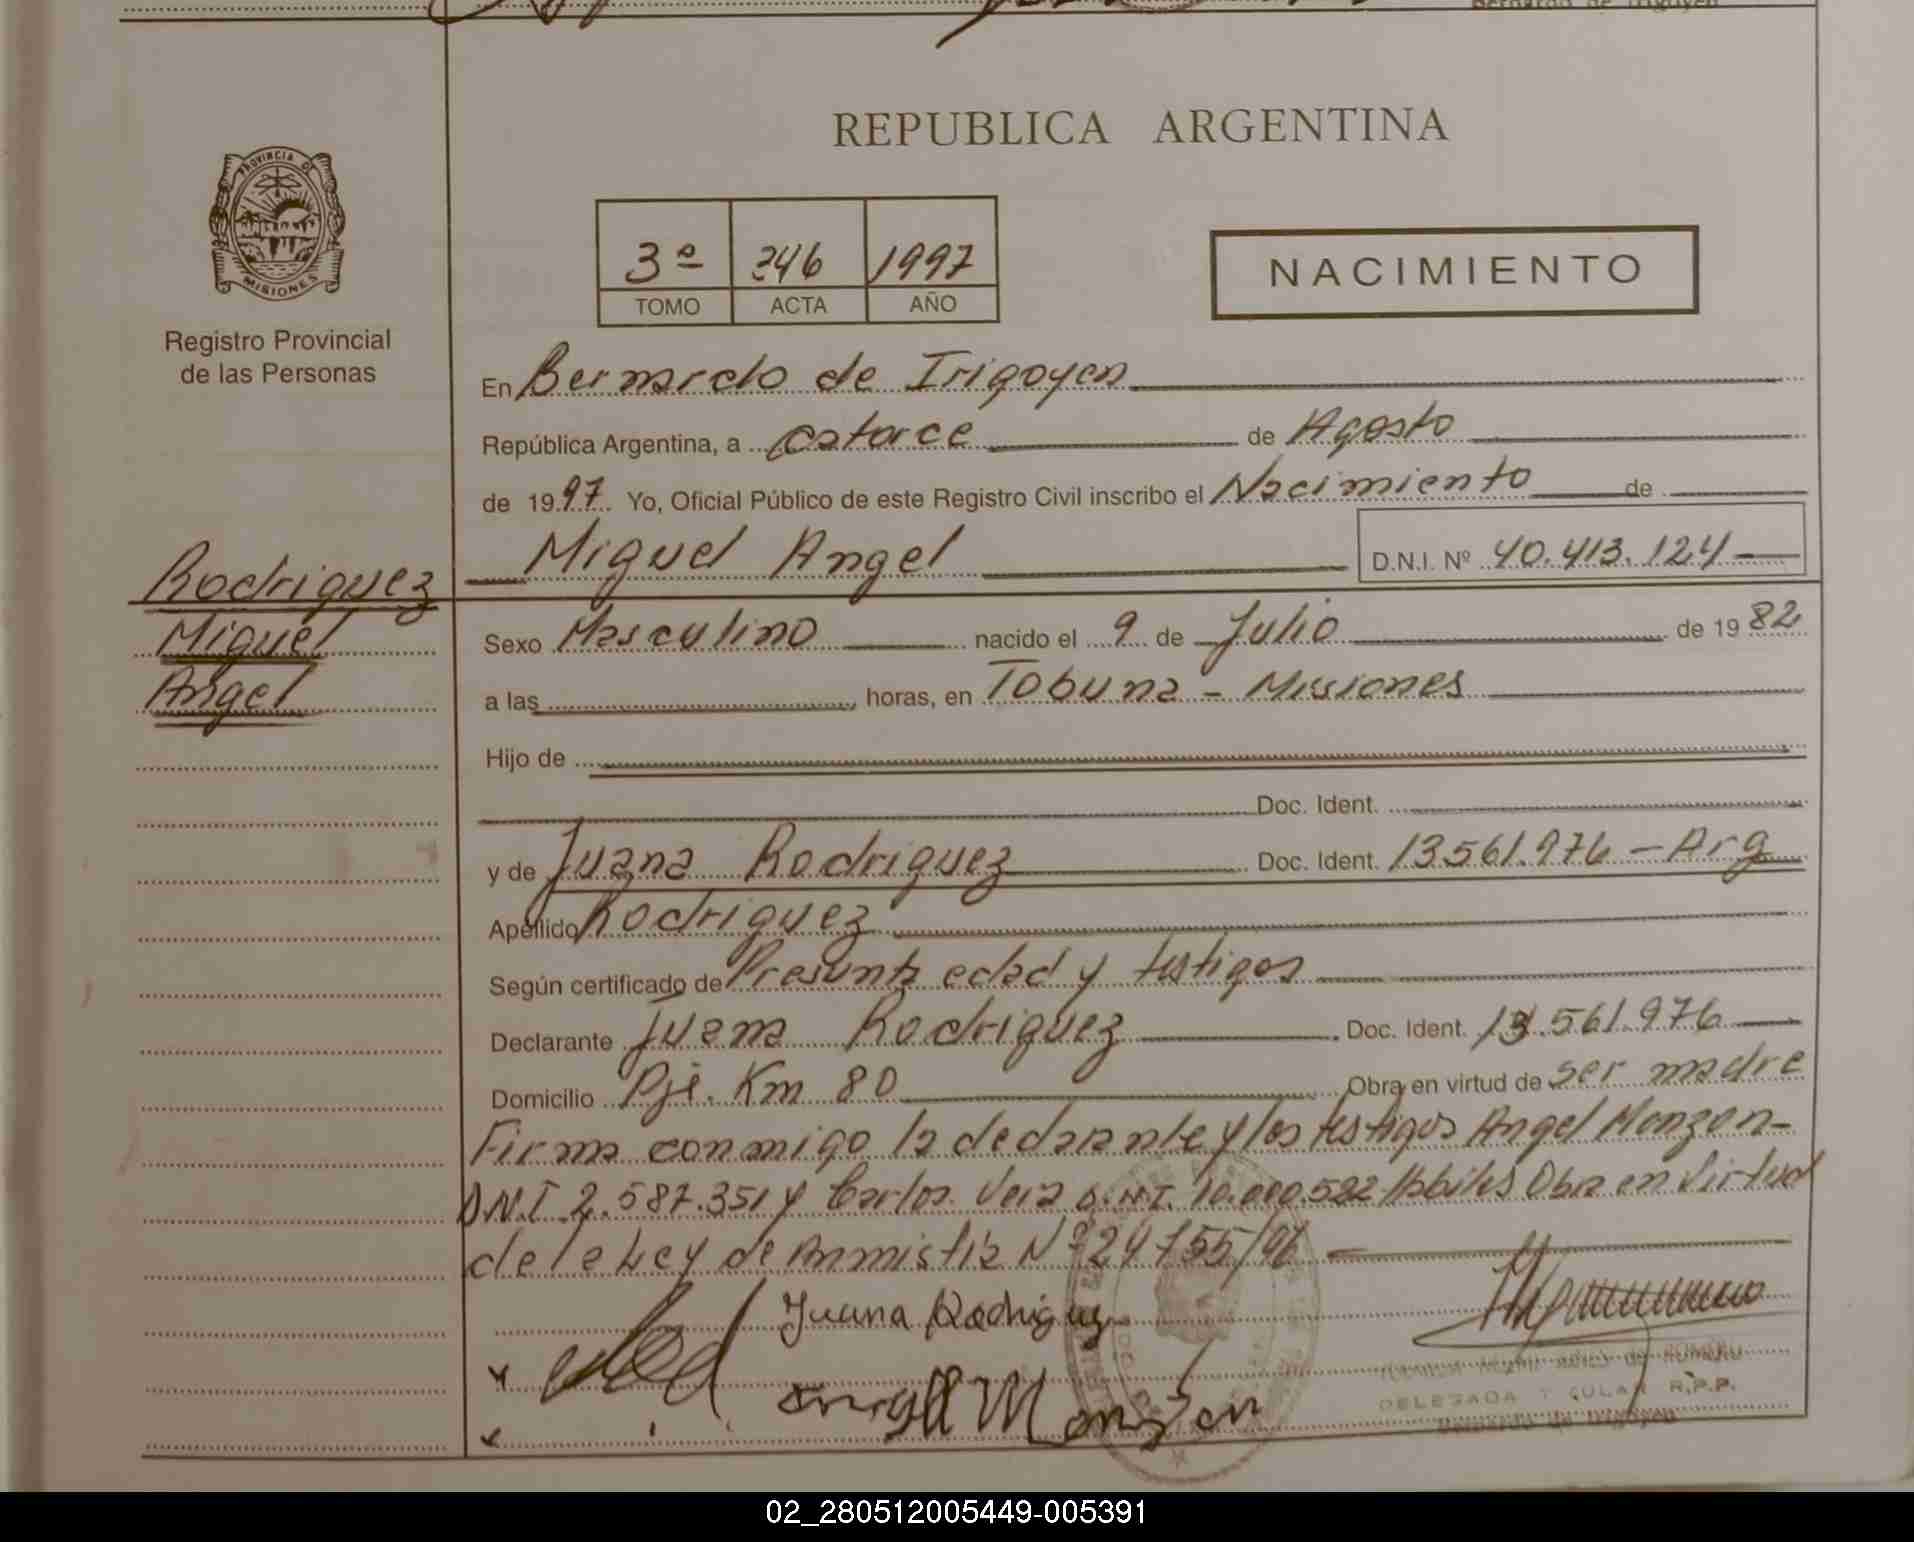 Bernardo de Irigoyen
REPUBLICA ARGENTINA
PROVINCIA DE
MISIONES
Registro Provincial
de las Personas
3º 246 1997
TOMO ACTA AÑO
NACIMIENTO
En Bernardo de Irigoyen
República Argentina, a catorce de Agosto
de 1997 Yo, Oficial Público de este Registro Civil inscribo el Nacimiento de
Miguel Angel D.N.I. Nº 40.413.124
Rodriguez
Miguel
Angel
Sexo Masculino nacido el 9 de Julio de 1982
a las horas, en Tobuna - Misiones
Hijo de
Doc. Ident.
y de Juana Rodriguez Doc. Ident. 13.561.976 - Arg
Apellido Rodriguez
Según certificado de Presunta edad y testigos
Declarante Juana Rodriguez Doc. Ident. 13.561.976
Domicilio Pje. Km 80 Obra en virtud de ser madre
Firma conmigo la declarante y los testigos Angel Monzon-
D.N.I. 2.587.351 y Carlos Vera D.N.I. 10.000.522 Habiles Obra en Virtud
de la Ley de Amnistia Nº 24755/96
Juana Rodriguez
Angel Monzon
DELEGADA TITULAR R.P.P.
Bernardo de Irigoyen
02_280512005449-005391